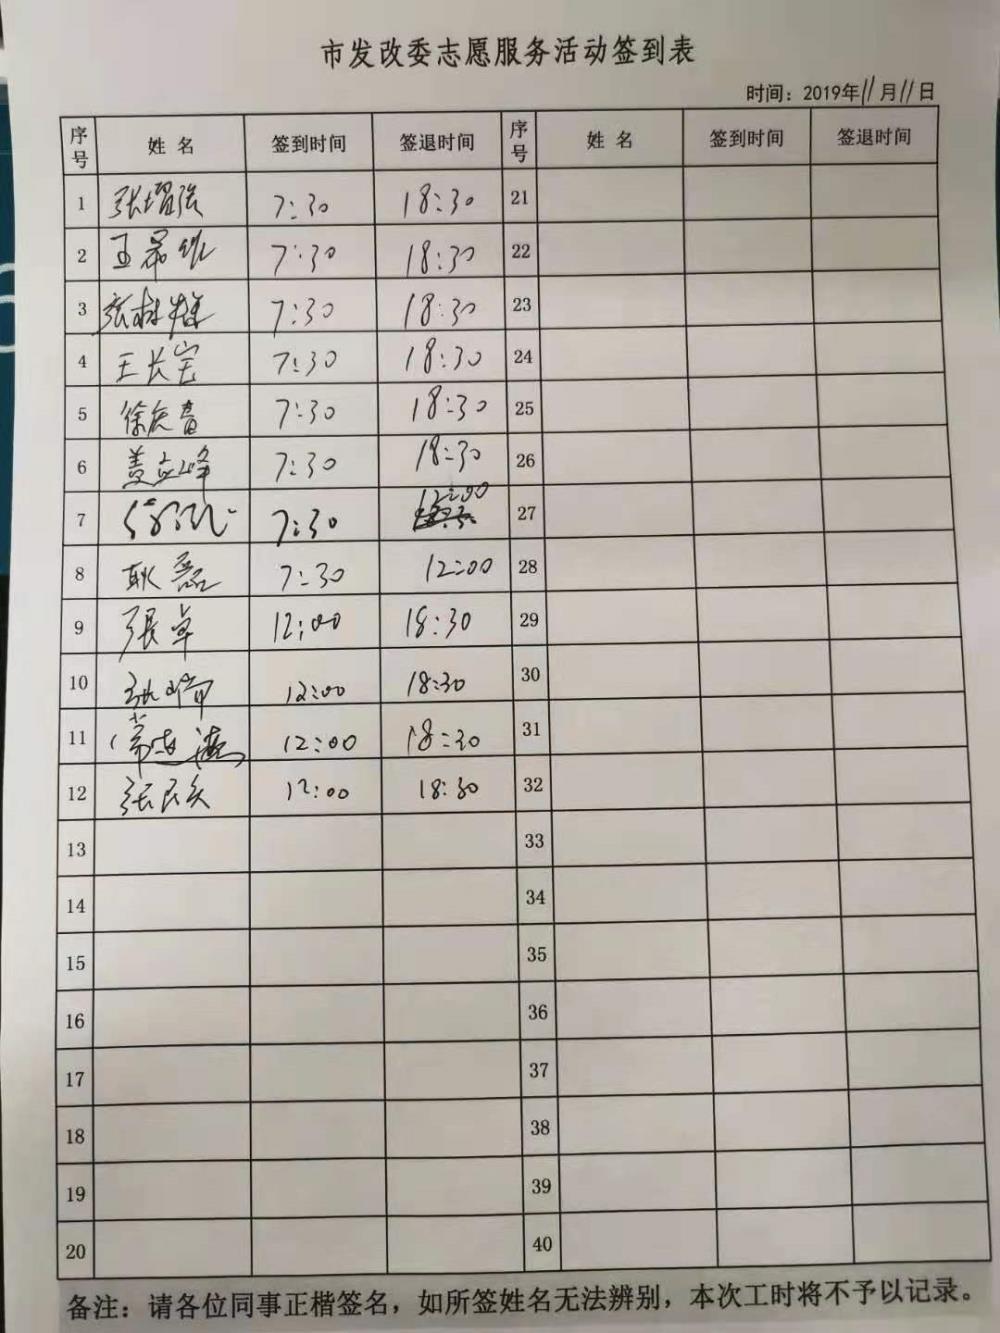 市发改委志愿服务活动签到表
时间：2019年11月11日
序号 姓名 签到时间 签退时间 序号 姓名 签到时间 签退时间
1 张增强 7:30 18:30 21
2 王 7:30 18:30 22
3 张 7:30 18:30 23
4 王长宝 7:30 18:30 24
5 徐 7:30 18:30 25
6 姜立峰 7:30 18:30 26
7 7:30 12:00 27
8 耿磊 7:30 12:00 28
9 张卓 12:00 18:30 29
10 12:00 18:30 30
11 常 12:00 18:30 31
12 张 12:00 18:30 32
13 33
14 34
15 35
16 36
17 37
18 38
19 39
20 40
备注：请各位同事正楷签名，如所签姓名无法辨别，本次工时将不予以记录。